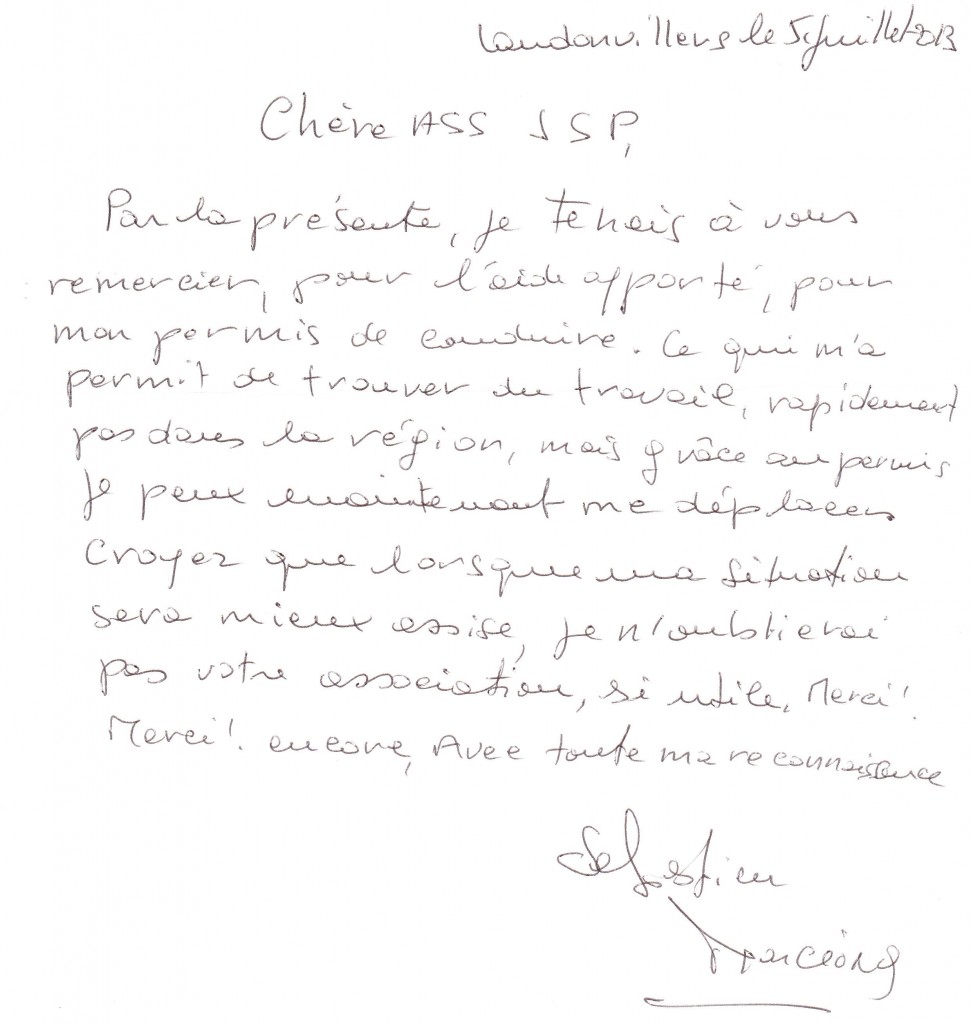 Landonvillers le 5 juillet 2013
Chère ASS J S P,
Par la présente, je tenais à vous
remercier, pour l'aide apporté, pour
mon permis de conduire. Ce qui m'a
permit de trouver du travail, rapidement
pas dans la région, mais grâce au permis
je peux maintenant me déplacer
Croyez que lorsque ma situation
sera mieux assise, je n'oublierai
pas votre association, si utile, Merci!
Merci! encore, Avec toute ma reconnaissance
Sébastien